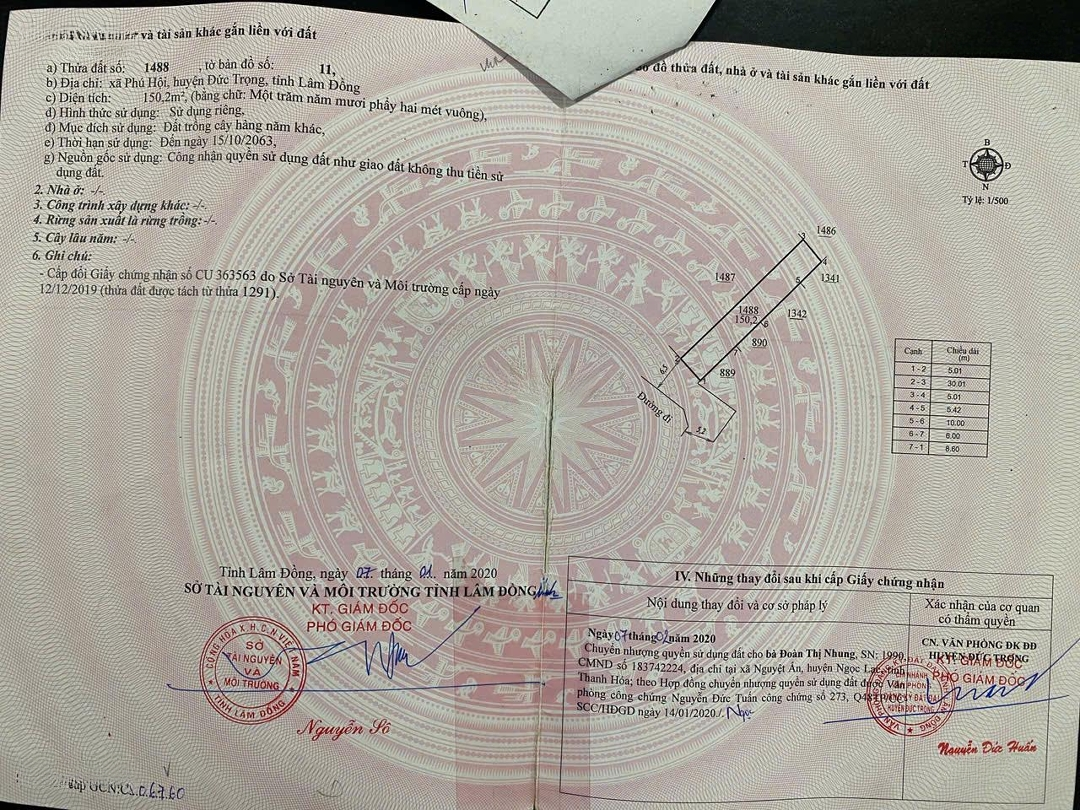 và tài sản khác gắn liền với đất
a) Thửa đất số: 1488 , tờ bản đồ số: 11,
b) Địa chỉ: xã Phú Hội, huyện Đức Trọng, tỉnh Lâm Đồng
c) Diện tích: 150,2m², (bằng chữ: Một trăm năm mươi phẩy hai mét vuông),
d) Hình thức sử dụng: Sử dụng riêng,
đ) Mục đích sử dụng: Đất trồng cây hàng năm khác,
e) Thời hạn sử dụng: Đến ngày 15/10/2063,
g) Nguồn gốc sử dụng: Công nhận quyền sử dụng đất như giao đất không thu tiền sử
dụng đất.
2. Nhà ở: -/-.
3. Công trình xây dựng khác: -/-.
4. Rừng sản xuất là rừng trồng: -/-.
5. Cây lâu năm: -/-.
6. Ghi chú:
- Cấp đổi Giấy chứng nhận số CU 363563 do Sở Tài nguyên và Môi trường cấp ngày
12/12/2019 (thửa đất được tách từ thửa 1291).
Tỉnh Lâm Đồng, ngày 07 tháng 01 năm 2020
SỞ TÀI NGUYÊN VÀ MÔI TRƯỜNG TỈNH LÂM ĐỒNG
KT. GIÁM ĐỐC
PHÓ GIÁM ĐỐC
CỘNG HÒA X.H.C.N VIỆT NAM
SỞ
TÀI NGUYÊN
VÀ
MÔI TRƯỜNG
TỈNH LÂM ĐỒNG
Nguyễn Số
đồ thửa đất, nhà ở và tài sản khác gắn liền với đất
B
T Đ
N
Tỷ lệ: 1/500
3 1486
4
1487
5 1341
1488
150,2
1342
6
890
7
2
889
1
6.5
Đường đi
5.2
Cạnh Chiều dài (m)
1 - 2 5.01
2 - 3 30.01
3 - 4 5.01
4 - 5 5.42
5 - 6 10.00
6 - 7 6.00
7 - 1 8.60
IV. Những thay đổi sau khi cấp Giấy chứng nhận
Nội dung thay đổi và cơ sở pháp lý
Xác nhận của cơ quan
có thẩm quyền
Ngày 07 tháng 02 năm 2020
Chuyển nhượng quyền sử dụng đất cho bà Đoàn Thị Nhung, SN: 1990,
CMND số 183742224, địa chỉ tại xã Nguyệt Ấn, huyện Ngọc Lặc, tỉnh
Thanh Hóa; theo Hợp đồng chuyển nhượng quyền sử dụng đất được Văn
phòng công chứng Nguyễn Đức Tuấn công chứng số 273,
SCC/HĐGD ngày 14/01/2020./.
CN. VĂN PHÒNG ĐK ĐĐ
HUYỆN ĐỨC TRỌNG
KT. GIÁM ĐỐC
PHÓ GIÁM ĐỐC
CHI NHÁNH
VĂN PHÒNG
ĐĂNG KÝ ĐẤT ĐAI
HUYỆN ĐỨC TRỌNG
Nguyễn Đức Huấn